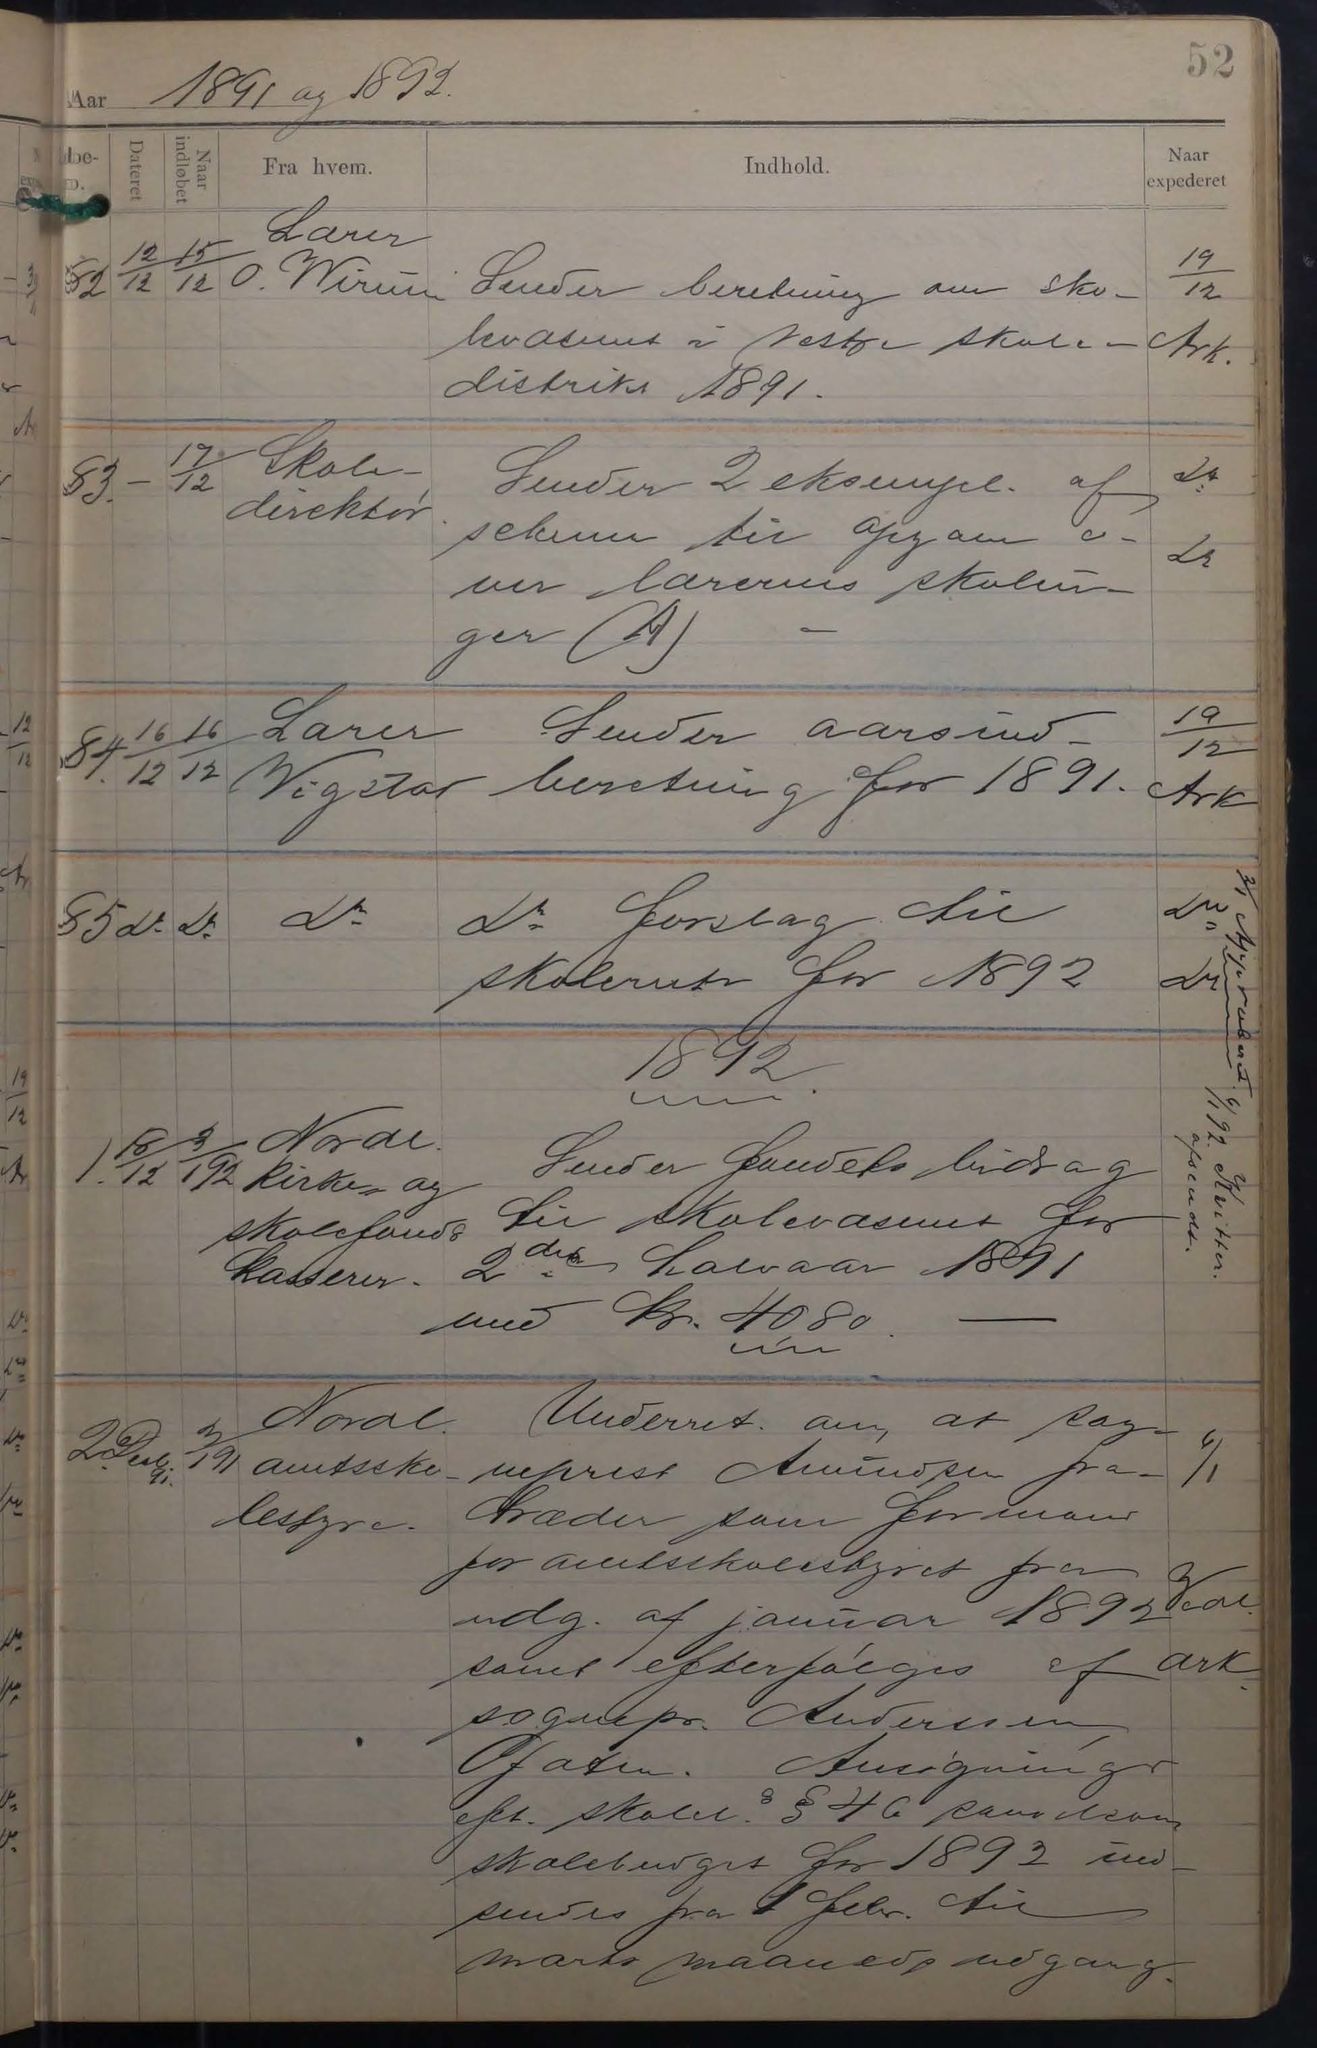 52
Aar 1891 og 1892.
Dateret
Naar indløbet
Fra hvem.
Indhold.
Naar expederet
82 12/12 15/12 Lærer O. Wirum
Sender beretning om sko-
levæsenet i Vestre skole-
distrikt 1891.
19/12
Ark.
83. — 17/12 Skole-
direktør.
Sender 2 eksempl. af
schema til opgave o-
ver lærernes
ger (A) —
Do
Do
84. 16/12 16/12 Lærer
Vigstad
Sender aarsind-
beretning for 1891.
19/12
Ark
85 Do Do Do
Do forslag til
skolerute for 1892
Do
Do
1892.
1. 18/12 3/1 92 Nordl.
kirke- og
skolefonds
kasserer.
Sender fondets bidrag
til skolevæsenet for
2det halvaar 1891
med kr. 40,80. —
6/1 92 Kvitter.
afsendt.
2. Decb. 91. 3/1 91 Nordl.
amtssko-
lestyre.
Underret. om, at sog-
neprest Amundsen fra-
træder som formand
for amtsskolestyret fra
udg. af januar 1892
samt efterfølges af
sognepr. Anderssen,
Ofoten. Ansøgninger
eft. skolel. § 46 samt
skolebudget for 1892 ind-
sendes fra 1 febr. til
marts maaneds udgang.
6/1
Vedl.
Ark.